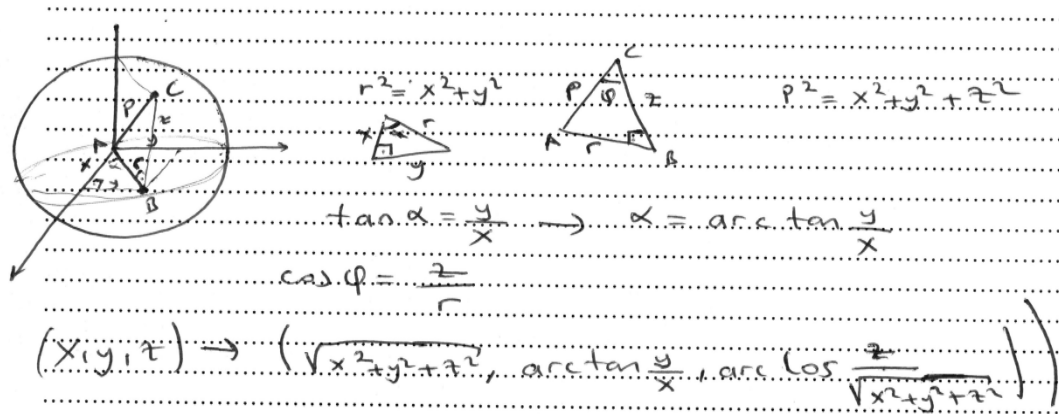 C
P
z
A
φ
x
r
α
y
B
r² = x²+y²
x
α
r
y
C
P
φ
z
A
r
B
P² = x²+y²+z²
tan α = y/x → α = arc tan y/x
cos φ = z/r
(x,y,z) → (√x²+y²+z², arctan y/x, arc cos z/√x²+y²+z²))